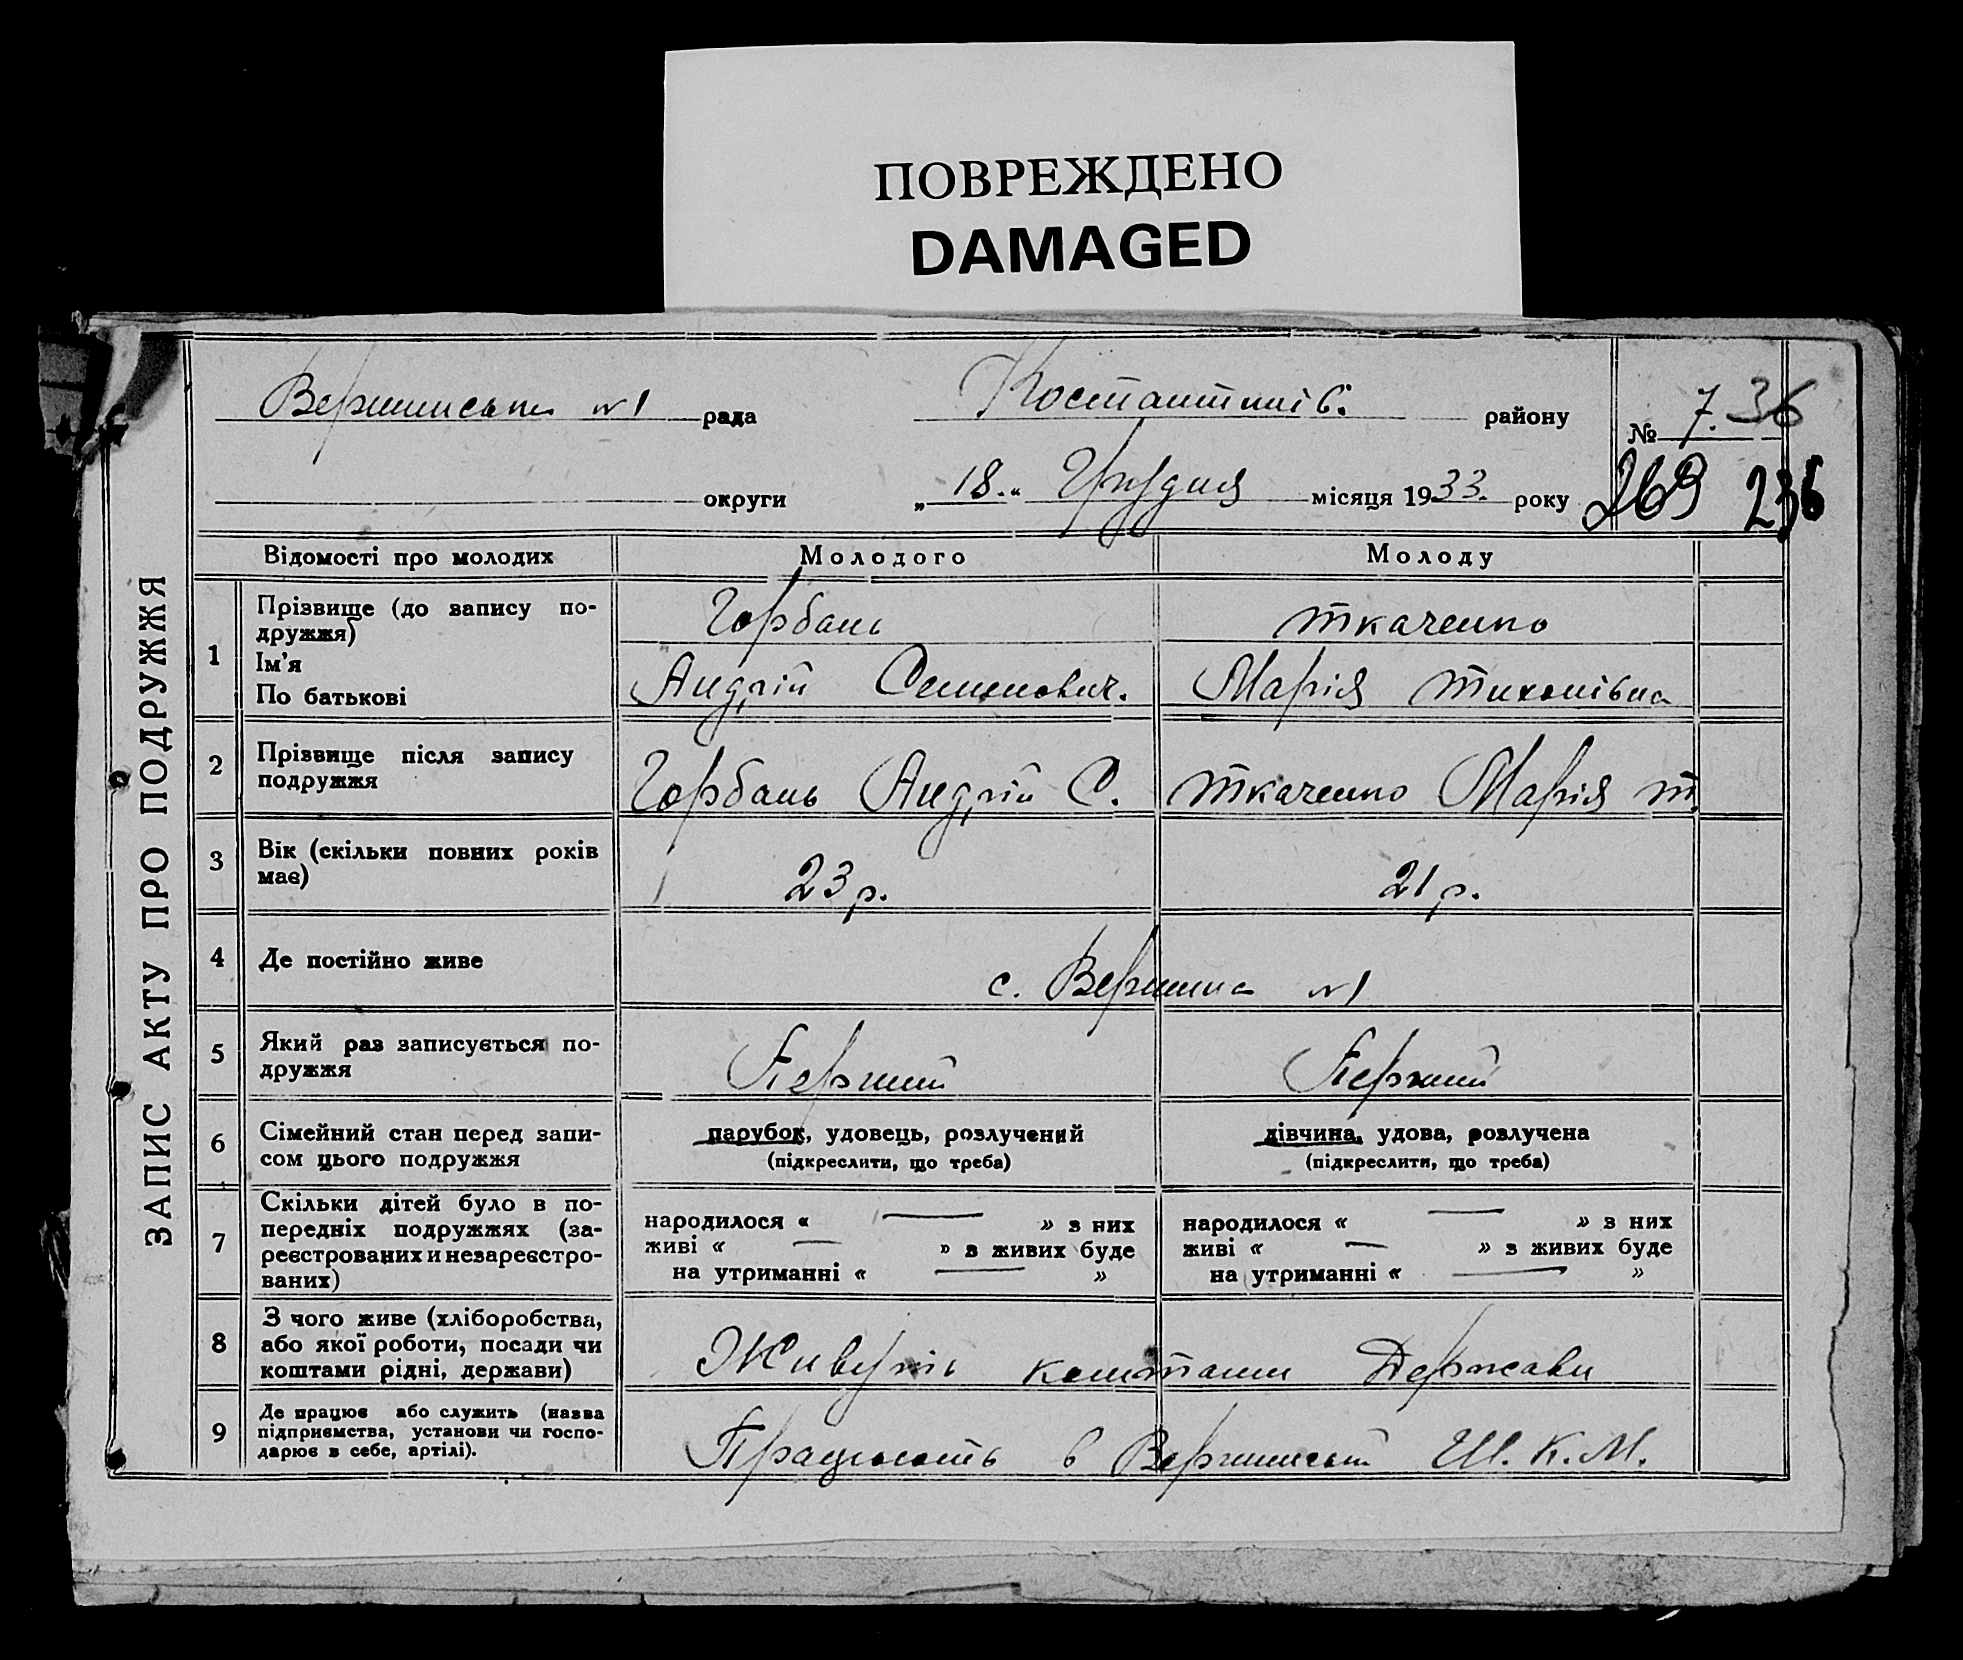 ПОВРЕЖДЕНО
DAMAGED
Вершинська №1 рада Костантинів. району № 7. 36
округи „18.“ Грудня місяця 1933. року 269 236
ЗАПИС АКТУ ПРО ПОДРУЖЖЯ
Відомості про молодих Молодого Молоду
1 Прізвище (до запису по-
дружжя) Горбань Ткаченко
Ім'я
По батькові Андрій Семенович. Марія Тихонівна
2 Прізвище після запису
подружжя Горбань Андрій С. Ткаченко Марія Т.
3 Вік (скільки повних років
має) 23 р. 21 р.
4 Де постійно живе с. Вершина №1
5 Який раз записується по-
дружжя Перший Перший
6 Сімейний стан перед запи- парубок, удовець, розлучений дівчина, удова, розлучена
сом цього подружжя (підкреслити, що треба) (підкреслити, що треба)
7 Скільки дітей було в по-
передніх подружжях (за-
реєстрованих и незареєстро-
ваних)
народилося « — » з них
живі « — » з живих буде
на утриманні « — »
народилося « — » з них
живі « — » з живих буде
на утриманні « — »
8 З чого живе (хліборобства,
або якої роботи, посади чи
коштами рідні, держави) Живуть коштами Держави
9 Де працює або служить (назва
підприємства, установи чи госпо-
дарює в себе, артілі). Працюють в Вершинській Ш.К.М.